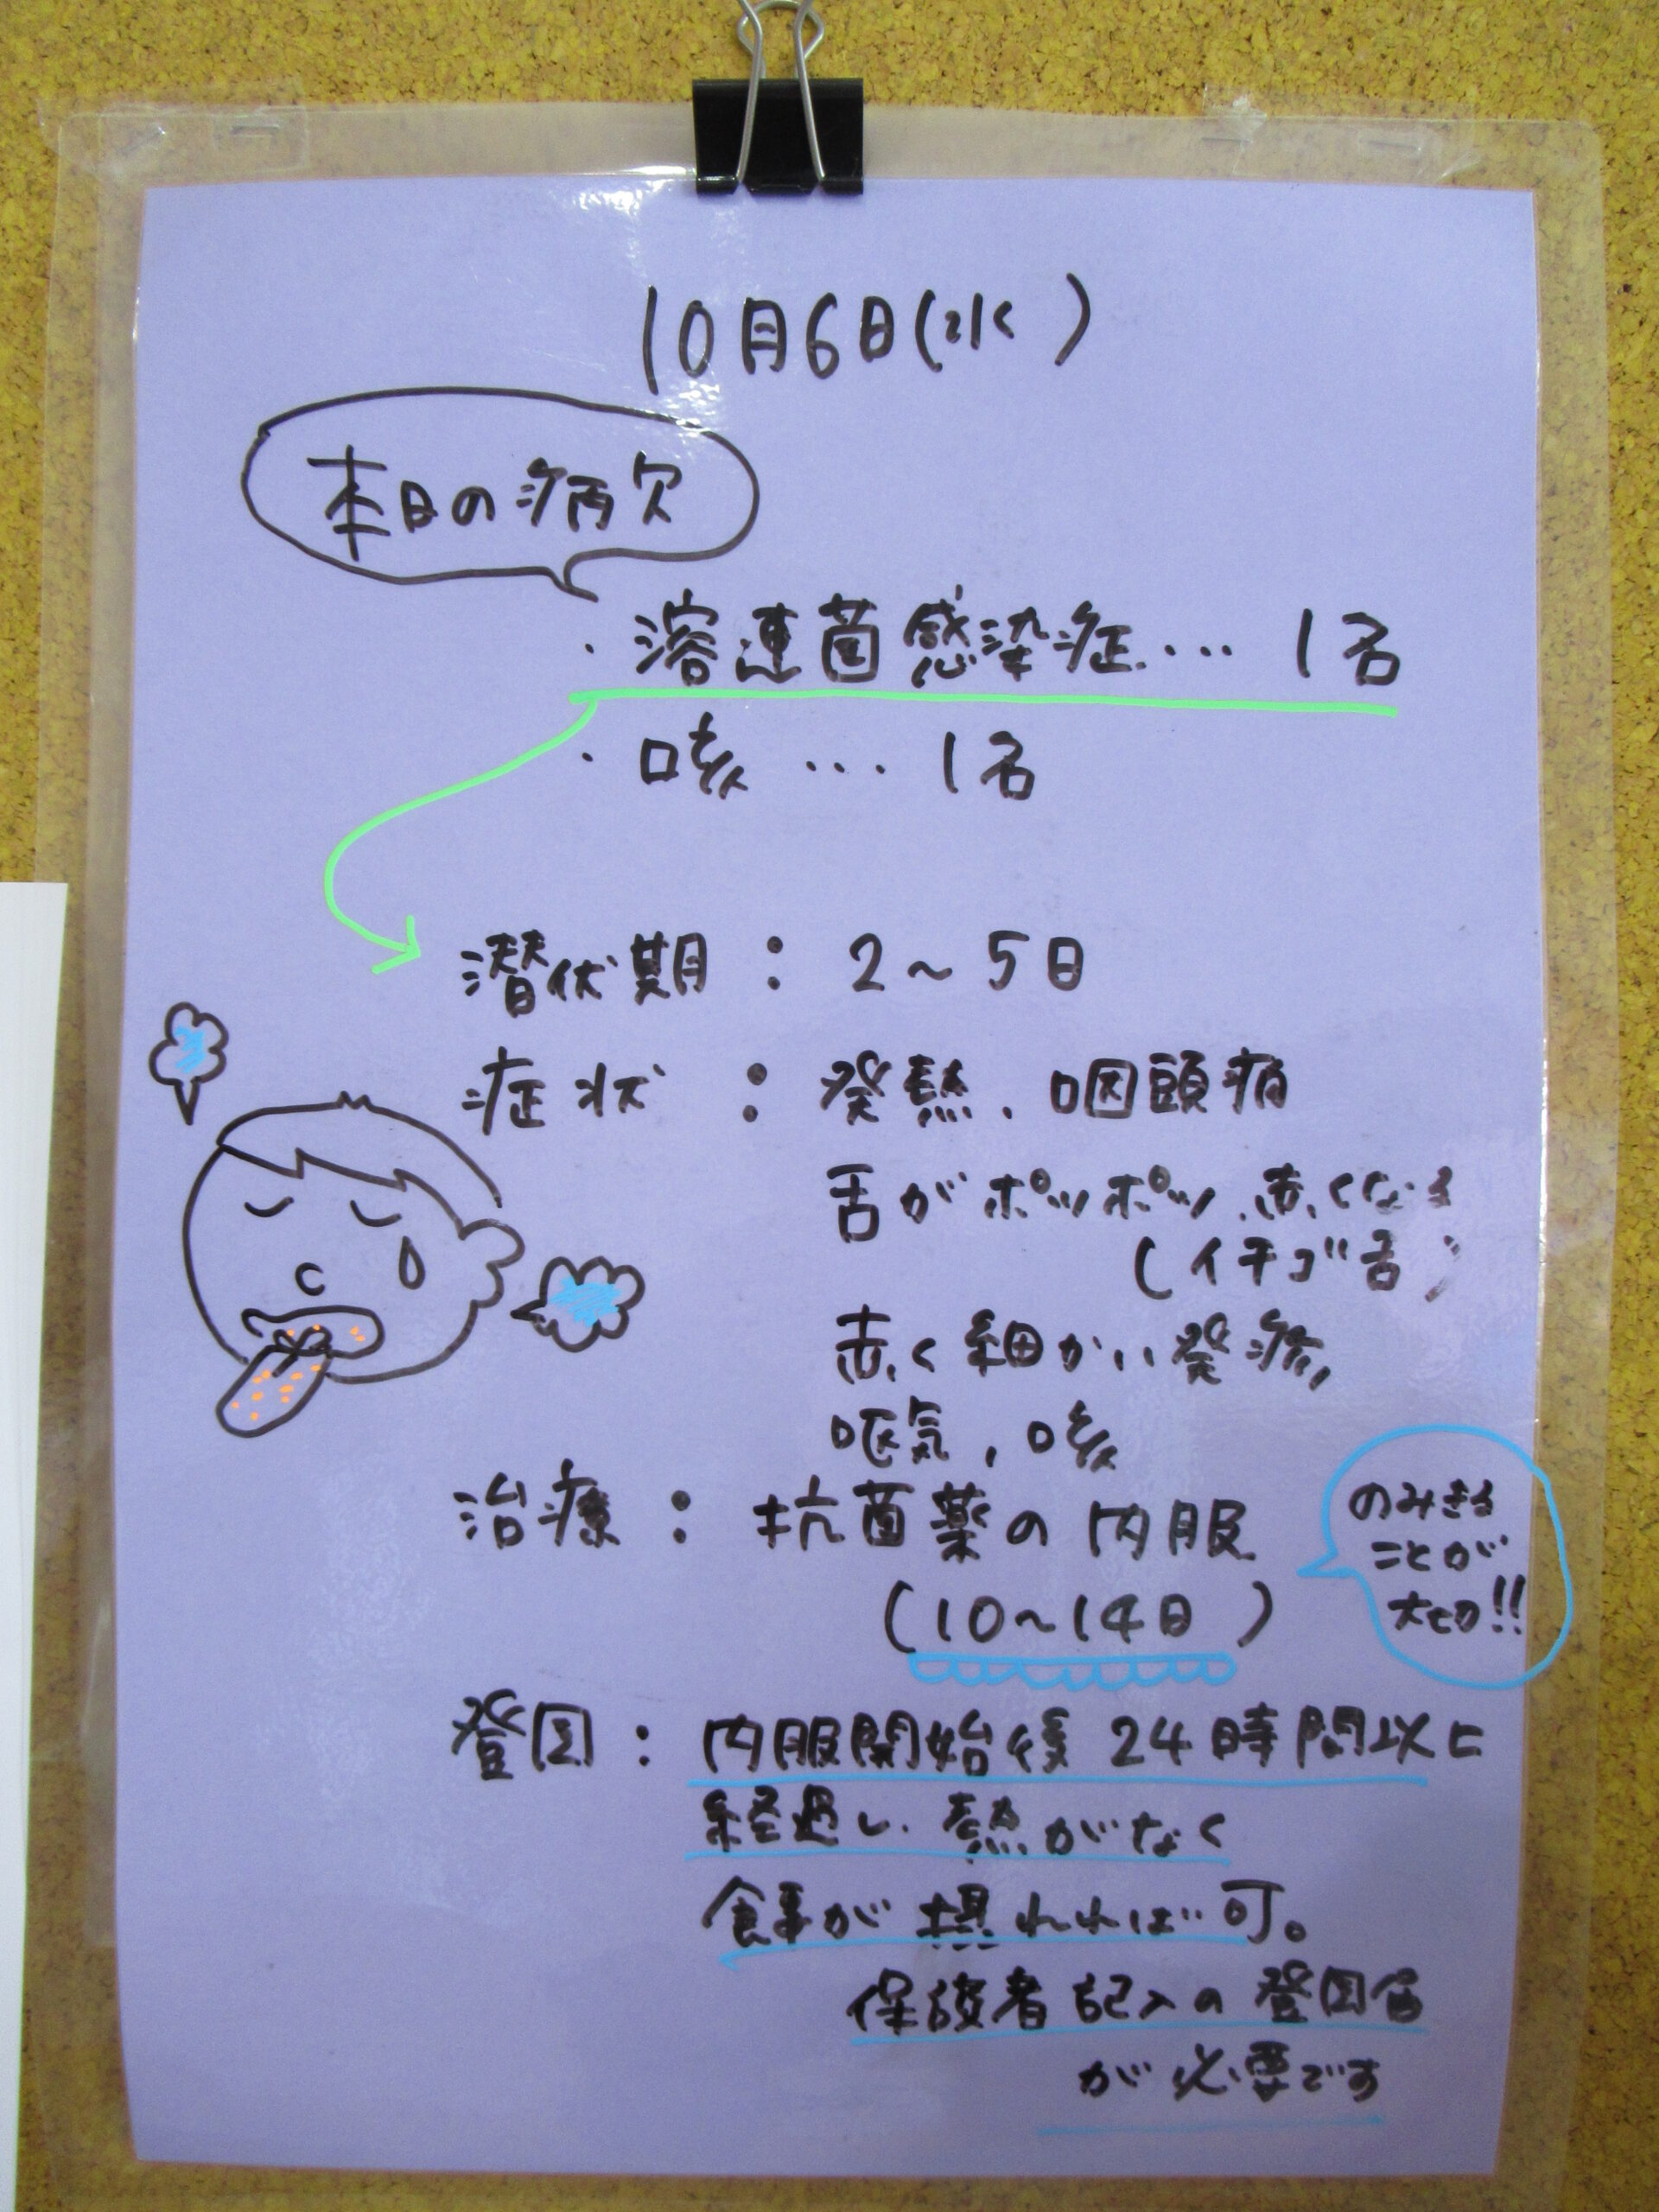 10月6日(水)
本日の病欠
・溶連菌感染症・・・・1名
・咳・・・1名
潜伏期：2～5日
症状：発熱、咽頭痛
舌がポツポツ、赤くなる
(イチゴ舌)
赤く細かい発疹,
嘔気、咳
治療：抗菌薬の内服
(10～14日)
のみきる
ことが
大切!!
登園：内服開始後24時間以上
経過し、熱がなく
食事が摂れれば可。
保護者記入の登園届
が必要です